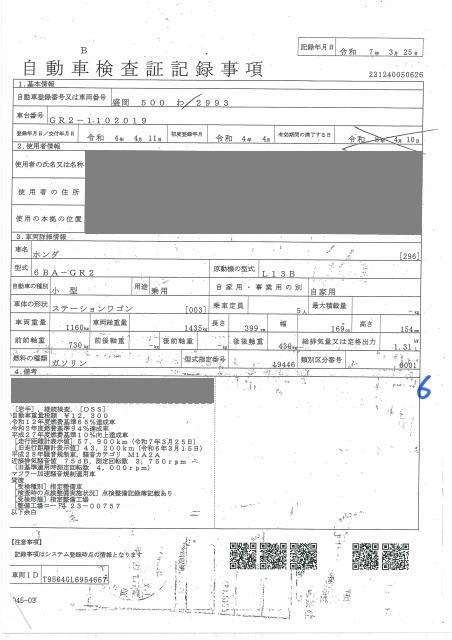 B
記録年月日 令和 7年 3月 25日
自動車検査証記録事項
231240050626
1.基本情報
自動車登録番号又は車両番号 盛岡 500 わ 2993
車台番号 GR2-1102019
登録年月日/交付年月日 令和 4年 4月 11日 初度登録年月 令和 4年 4月 有効期間の満了する日 令和 8年 4月 10日
2.使用者情報
使用者の氏名又は名称
使用者の住所
使用の本拠の位置
3.車両詳細情報
車名 ホンダ [296]
型式 6BA-GR2 原動機の型式 L13B
自動車の種別 小型 用途 乗用 自家用・事業用の別 自家用
車体の形状 ステーションワゴン [003] 乗車定員 5人 最大積載量
車両重量 1160kg 車両総重量 1435kg 長さ 399cm 幅 169cm 高さ 154cm
前前軸重 730kg 前後軸重 後前軸重 後後軸重 430kg 総排気量又は定格出力 1.31L
燃料の種類 ガソリン 型式指定番号 19446 類別区分番号 0001
4.備考
6
[岩手],継続検査,[OSS]
自動車重量税額 ¥12,300
令和12年度燃費基準65%達成車
令和2年度燃費基準94%達成車
平成27年度燃費基準10%向上達成車
[走行距離計表示値] 57,900km (令和7年3月25日)
[旧走行距離計表示値] 43,200km (令和6年3月15日)
平成28年騒音規制車,騒音カテゴリ M1A2A
近接排気騒音値 75dB,測定回転数 3,750rpm
(旧基準適用時測定回転数 4,000rpm)
マフラー加速騒音規制適用車
貸渡
[受検種別] 指定整備車
[検査時の点検整備実施状況] 点検整備記録簿記載あり
[受検形態] 指定整備工場
[整備工場コード] 23-00757
以下余白
【注意事項】
記録事項はシステム登録時点の情報となります
車両ID T9564GL6954667
045-03